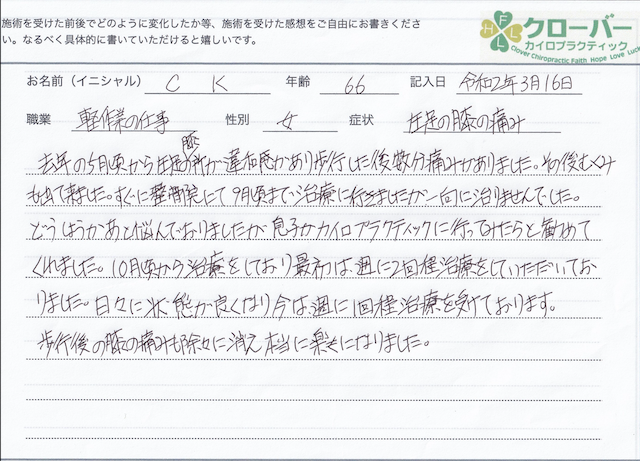 施術を受けた前後でどのように変化したか等、施術を受けた感想をご自由にお書きくださ
い。なるべく具体的に書いていただけると嬉しいです。
HFLL
クローバー
カイロプラクティック
Clover Chiropractic Faith Hope Love Luck
お名前（イニシャル） C K 年齢 66 記入日 令和2年3月16日
職業 軽作業の仕事 性別 女 症状 左足の膝の痛み
去年の5月頃から左足の膝が違和感があり歩行した後数分痛みがありました。その後むくみ
も出て来ました。すぐに整骨院にて9月頃まで治療に行きましたが一向に治りませんでした。
どうしようかあと悩んでおりましたが息子がカイロプラクティックに行ってみたらと勧めて
くれました。10月頃から治療をしており最初は、週に2回程治療をしていただいてお
りました。日々に状態が良くなり今は、週に1回程治療を受けております。
歩行後の膝の痛みも除々に消え本当に楽になりました。